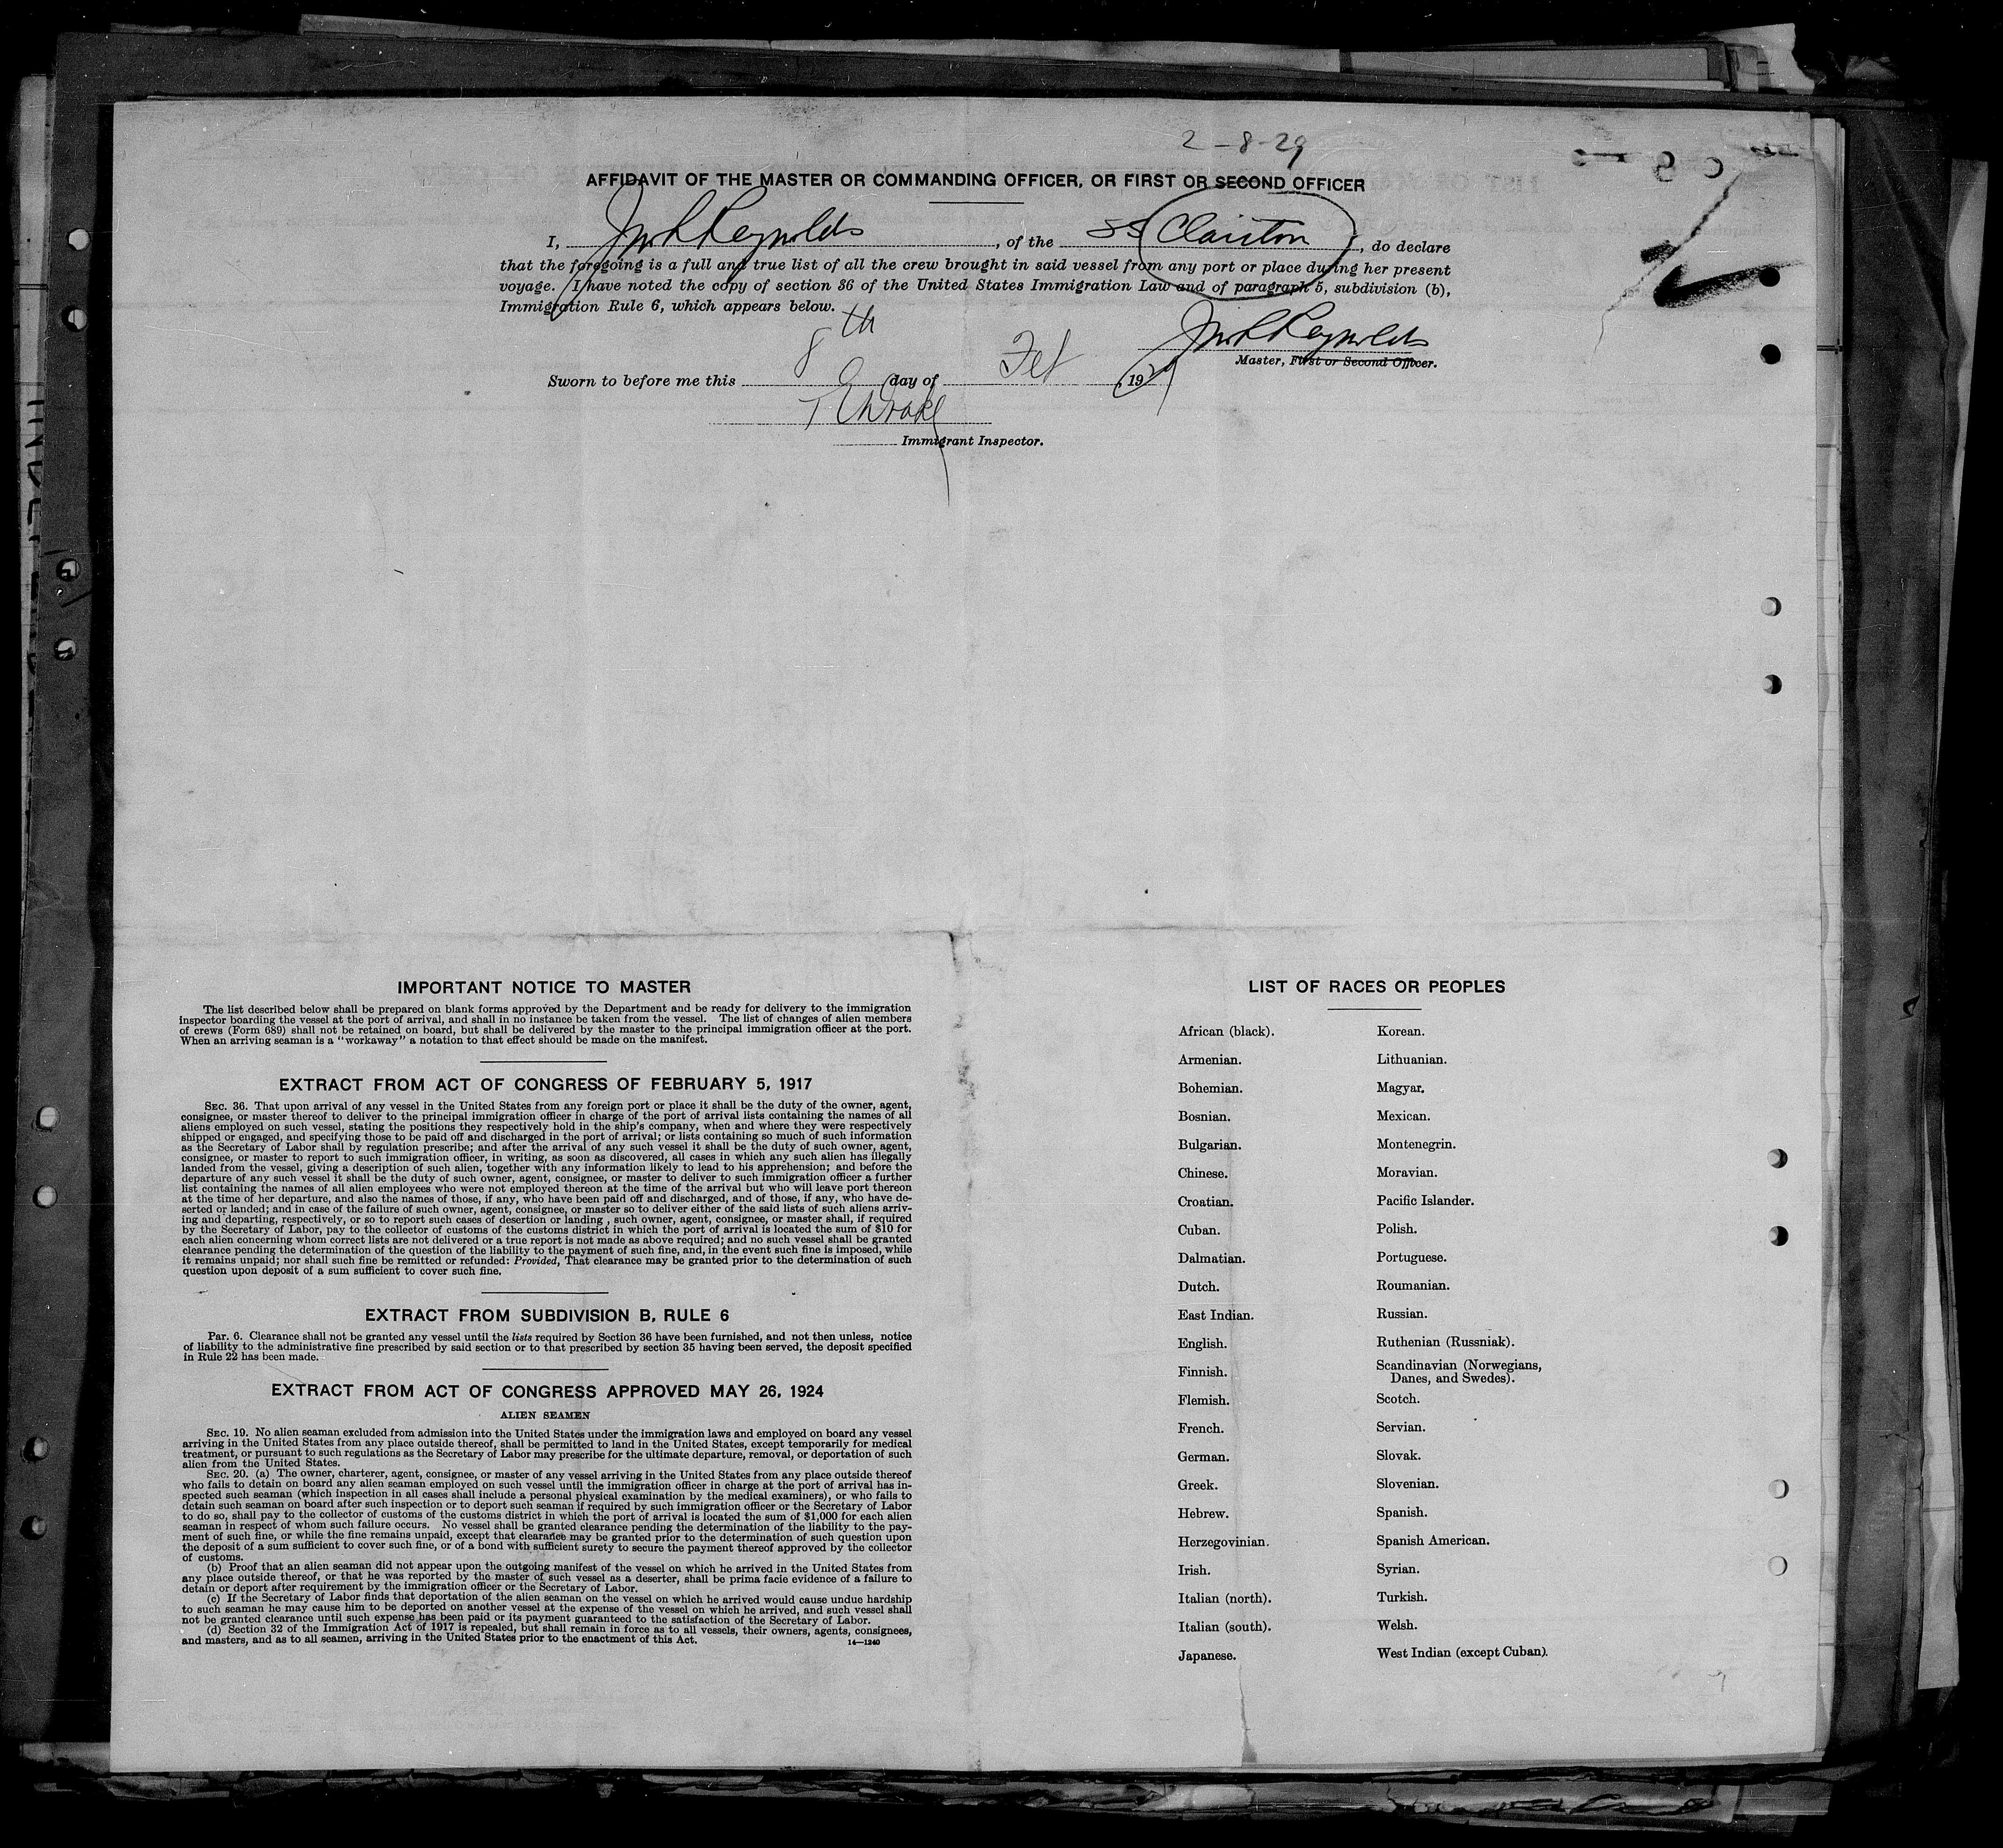 2-8-29
AFFIDAVIT OF THE MASTER OR COMMANDING OFFICER, OR FIRST OR SECOND OFFICER
I, Reynolds, of the SS Clairton, do declare
that the foregoing is a full and true list of all the crew brought in said vessel from any port or place during her present
voyage. I have noted the copy of section 36 of the United States Immigration Law and of paragraph 5, subdivision (b),
Immigration Rule 6, which appears below.
Reynolds
Master, First or Second Officer.
Sworn to before me this 8th day of Feb, 1929
Immigrant Inspector.
IMPORTANT NOTICE TO MASTER
The list described below shall be prepared on blank forms approved by the Department and be ready for delivery to the immigration
inspector boarding the vessel at the port of arrival, and shall in no instance be taken from the vessel. The list of changes of alien members
of crews (Form 689) shall not be retained on board, but shall be delivered by the master to the principal immigration officer at the port.
When an arriving seaman is a "workaway" a notation to that effect should be made on the manifest.
EXTRACT FROM ACT OF CONGRESS OF FEBRUARY 5, 1917
SEC. 36. That upon arrival of any vessel in the United States from any foreign port or place it shall be the duty of the owner, agent,
consignee, or master thereof to deliver to the principal immigration officer in charge of the port of arrival lists containing the names of all
aliens employed on such vessel, stating the positions they respectively hold in the ship's company, when and where they were respectively
shipped or engaged, and specifying those to be paid off and discharged in the port of arrival; or lists containing so much of such information
as the Secretary of Labor shall by regulation prescribe; and after the arrival of any such vessel it shall be the duty of such owner, agent,
consignee, or master to report to such immigration officer, in writing, as soon as discovered, all cases in which any such alien has illegally
landed from the vessel, giving a description of such alien, together with any information likely to lead to his apprehension; and before the
departure of any such vessel it shall be the duty of such owner, agent, consignee, or master to deliver to such immigration officer a further
list containing the names of all alien employees who were not employed thereon at the time of the arrival but who will leave port thereon
at the time of her departure, and also the names of those, if any, who have been paid off and discharged, and of those, if any, who have de-
serted or landed; and in case of the failure of such owner, agent, consignee, or master so to deliver either of the said lists of such aliens arriv-
ing and departing, respectively, or so to report such cases of desertion or landing , such owner, agent, consignee, or master shall, if required
by the Secretary of Labor, pay to the collector of customs of the customs district in which the port of arrival is located the sum of $10 for
each alien concerning whom correct lists are not delivered or a true report is not made as above required; and no such vessel shall be granted
clearance pending the determination of the question of the liability to the payment of such fine, and, in the event such fine is imposed, while
it remains unpaid; nor shall such fine be remitted or refunded: Provided, That clearance may be granted prior to the determination of such
question upon deposit of a sum sufficient to cover such fine.
EXTRACT FROM SUBDIVISION B, RULE 6
Par. 6. Clearance shall not be granted any vessel until the lists required by Section 36 have been furnished, and not then unless, notice
of liability to the administrative fine prescribed by said section or to that prescribed by section 35 having been served, the deposit specified
in Rule 22 has been made.
EXTRACT FROM ACT OF CONGRESS APPROVED MAY 26, 1924
ALIEN SEAMEN
SEC. 19. No alien seaman excluded from admission into the United States under the immigration laws and employed on board any vessel
arriving in the United States from any place outside thereof, shall be permitted to land in the United States, except temporarily for medical
treatment, or pursuant to such regulations as the Secretary of Labor may prescribe for the ultimate departure, removal, or deportation of such
alien from the United States.
SEC. 20. (a) The owner, charterer, agent, consignee, or master of any vessel arriving in the United States from any place outside thereof
who fails to detain on board any alien seaman employed on such vessel until the immigration officer in charge at the port of arrival has in-
spected such seaman (which inspection in all cases shall include a personal physical examination by the medical examiners), or who fails to
detain such seaman on board after such inspection or to deport such seaman if required by such immigration officer or the Secretary of Labor
to do so, shall pay to the collector of customs of the customs district in which the port of arrival is located the sum of $1,000 for each alien
seaman in respect of whom such failure occurs. No vessel shall be granted clearance pending the determination of the liability to the pay-
ment of such fine, or while the fine remains unpaid, except that clearance may be granted prior to the determination of such question upon
the deposit of a sum sufficient to cover such fine, or of a bond with sufficient surety to secure the payment thereof approved by the collector
of customs.
(b) Proof that an alien seaman did not appear upon the outgoing manifest of the vessel on which he arrived in the United States from
any place outside thereof, or that he was reported by the master of such vessel as a deserter, shall be prima facie evidence of a failure to
detain or deport after requirement by the immigration officer or the Secretary of Labor.
(c) If the Secretary of Labor finds that deportation of the alien seaman on the vessel on which he arrived would cause undue hardship
to such seaman he may cause him to be deported on another vessel at the expense of the vessel on which he arrived, and such vessel shall
not be granted clearance until such expense has been paid or its payment guaranteed to the satisfaction of the Secretary of Labor.
(d) Section 32 of the Immigration Act of 1917 is repealed, but shall remain in force as to all vessels, their owners, agents, consignees,
and masters, and as to all seamen, arriving in the United States prior to the enactment of this Act.
14—1240
LIST OF RACES OR PEOPLES
African (black).
Armenian.
Bohemian.
Bosnian.
Bulgarian.
Chinese.
Croatian.
Cuban.
Dalmatian.
Dutch.
East Indian.
English.
Finnish.
Flemish.
French.
German.
Greek.
Hebrew.
Herzegovinian.
Irish.
Italian (north).
Italian (south).
Japanese.
Korean.
Lithuanian.
Magyar.
Mexican.
Montenegrin.
Moravian.
Pacific Islander.
Polish.
Portuguese.
Roumanian.
Russian.
Ruthenian (Russniak).
Scandinavian (Norwegians,
Danes, and Swedes).
Scotch.
Servian.
Slovak.
Slovenian.
Spanish.
Spanish American.
Syrian.
Turkish.
Welsh.
West Indian (except Cuban).